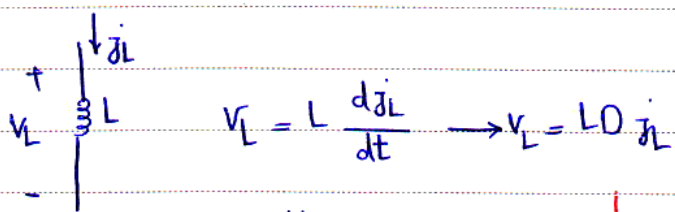 ↓ j_L
+
V_L L V_L = L dj_L/dt → V_L = LD j_L
-